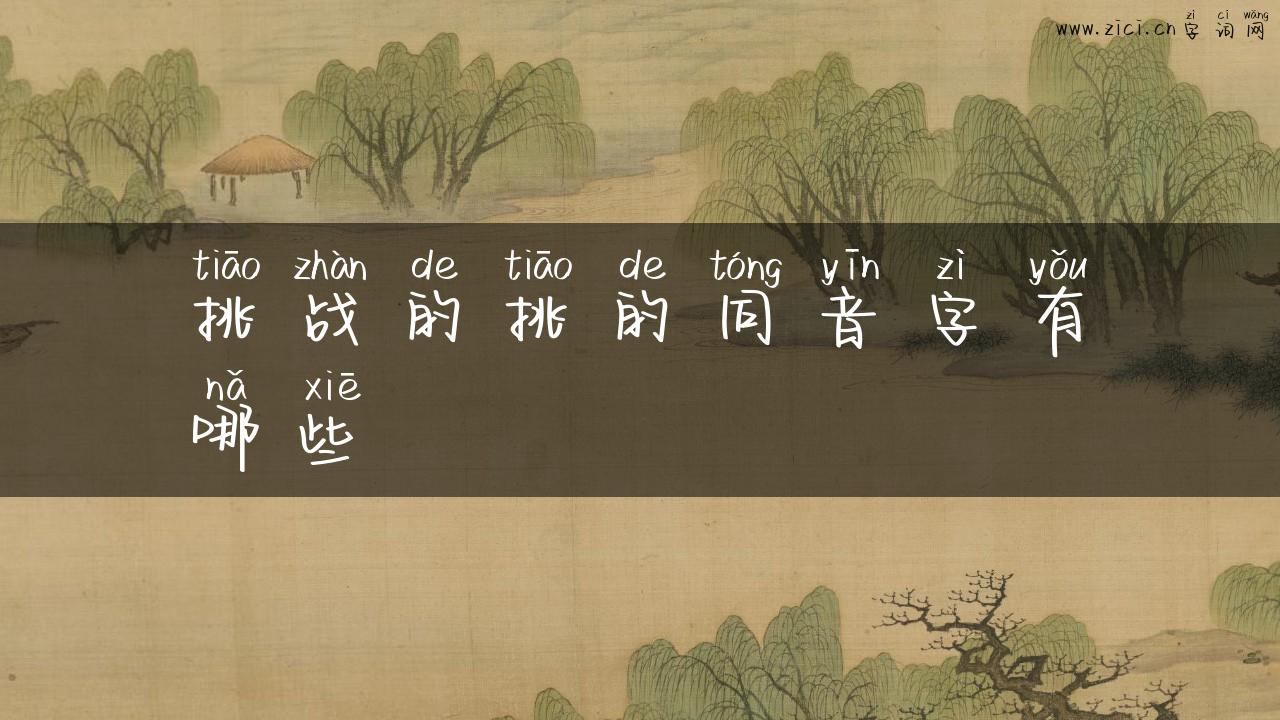 zì cí wǎng
www.zici.cn 字词网
tiāo zhàn de tiāo de tóng yīn zì yǒu
挑战的挑的同音字有
nǎ xiē
哪些